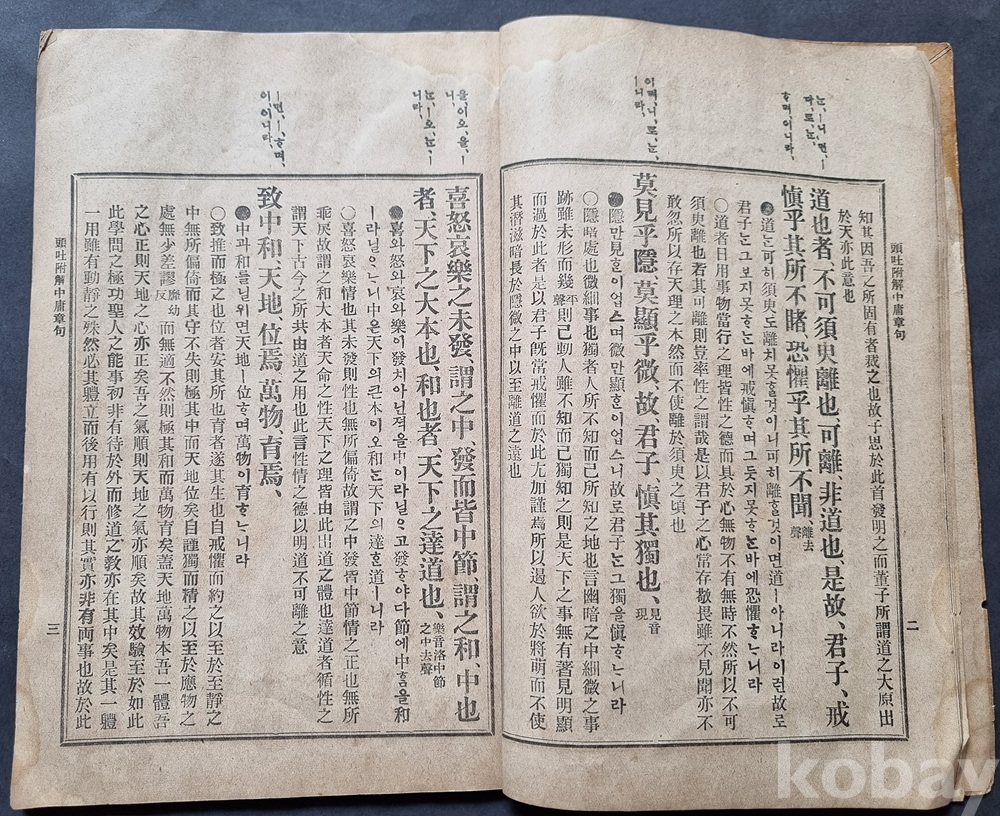 頭吐附解中庸章句
二
ᄂᆞᆫ、ㅣ니、면、ㅣ
다、로、ᄂᆞᆫ、
ᄒᆞ며、이니라、
이며、니、로、ᄂᆞᆫ、
ㅣ니라、
知其因吾之所固有者裁之也故子思於此首發明之而董子所謂道之大原出
於天亦此意也
道也者、不可須臾離也、可離、非道也、是故、君子、戒
愼乎其所不睹、恐懼乎其所不聞、離去聲
道ᄂᆞᆫ可히須臾도離치못ᄒᆞᆯ것이니可히離ᄒᆞᆯ것이면道ㅣ아니라이런故로
君子ᄂᆞᆫ그보지못ᄒᆞᄂᆞᆫ바에戒愼ᄒᆞ며그듯지못ᄒᆞᄂᆞᆫ바에恐懼ᄒᆞᄂᆞ니라
○道者日用事物當行之理皆性之德而具於心無物不有無時不然所以不可
須臾離也若其可離則豈率性之謂哉是以君子之心常存敬畏雖不見聞亦不
敢忽所以存天理之本然而不使離於須臾之頃也
莫見乎隱、莫顯乎微、故、君子、愼其獨也、見音現
隱만見ᄒᆞᆫ이업스며微만顯ᄒᆞᆫ이업스니故로君子ᄂᆞᆫ그獨을愼ᄒᆞᄂᆞ니라
○隱暗處也微細事也獨者人所不知而己所知之地也言幽暗之中細微之事
跡雖未形而幾平聲則已動人雖不知而己獨知之則是天下之事無有著見明顯
而過於此者是以君子旣常戒懼而於此尤加謹焉所以遏人欲於將萌而不使
其潛滋暗長於隱微之中以至離道之遠也
을、이오、을、ㅣ
니、
ᄂᆞᆫ、ㅣ오、ᄂᆞᆫ、ㅣ
니라、
ㅣ면、ㅣ、ᄒᆞ며、
이、이니라、
喜怒哀樂之未發、謂之中、發而皆中節、謂之和、中也
者、天下之大本也、和也者、天下之達道也、樂音洛中節之中去聲
喜와怒와哀와樂이發치아닌져을中이라닐ᄋᆞ고發ᄒᆞ야다節에中홈을和
ㅣ라닐ᄋᆞᄂᆞ니中은天下의큰本이오和ᄂᆞᆫ天下의達ᄒᆞᆫ道ㅣ니라
○喜怒哀樂情也其未發則性也無所偏倚故謂之中發皆中節情之正也無所
乖戾故謂之和大本者天命之性天下之理皆由此出道之體也達道者循性之
謂天下古今之所共由道之用也此言性情之德以明道不可離之意
致中和、天地、位焉、萬物、育焉、
中과和를닐위면天地ㅣ位ᄒᆞ며萬物이育ᄒᆞᄂᆞ니라
○致推而極之也位者安其所也育者遂其生也自戒懼而約之以至於至靜之
中無所偏倚而其守不失則極其中而天地位矣自謹獨而精之以至於應物之
處無少差謬靡幼反而無適不然則極其和而萬物育矣蓋天地萬物本吾一體吾
之心正則天地之心亦正矣吾之氣順則天地之氣亦順矣故其效驗至於如此
此學問之極功聖人之能事初非有待於外而修道之敎亦在其中矣是其一體
一用雖有動靜之殊然必其體立而後用有以行則其實亦非有兩事也故於此
頭吐附解中庸章句
三
kobay